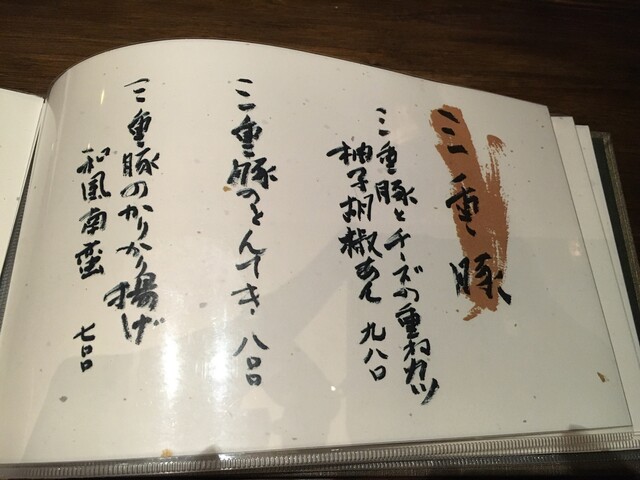 三重豚
三重豚とチーズの重ねカツ
柚子胡椒あん 九八〇
三重豚のとんてき 八〇〇
三重豚のかりかり揚げ
和風南蛮 七〇〇